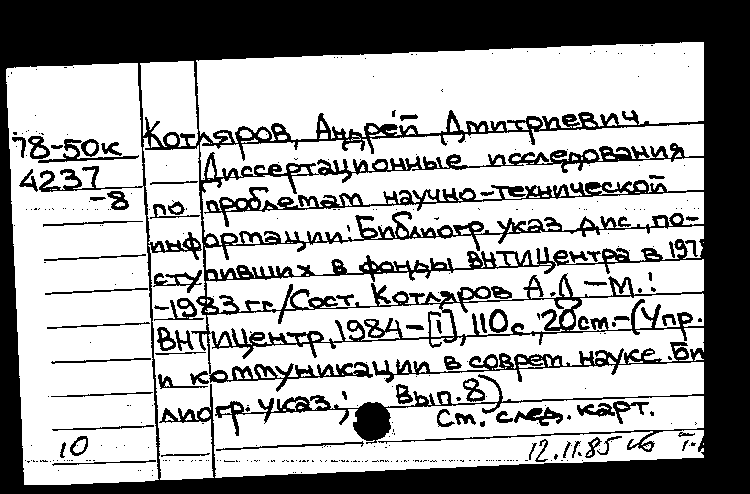 Котляров, Андрей Дмитриевич.
78-50к
4237
-8
Диссертационные исследования
по проблемам научно-технической
информации: Библиогр. указ. дис., по-
ступивших в фонды ВНТИЦентра в 1978
-1983 гг./Сост. Котляров А.Д.-М.:
ВНТИЦентр, 1984-[1], 110с.; 20см.-(Упр.
и коммуникации в соврем. науке. Би
лиогр. указ.; Вып. 8).
См. след. карт.
10
12.11.85